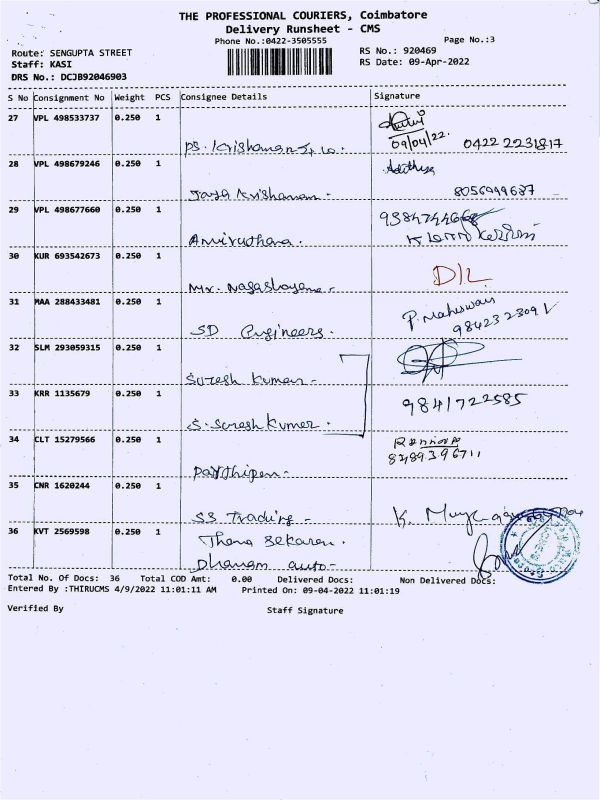 THE PROFESSIONAL COURIERS, Coimbatore
Delivery Runsheet - CMS
Phone No.:0422-3505555 Page No.:3
Route: SENGUPTA STREET RS No.: 920469
Staff: KASI RS Date: 09-Apr-2022
DRS No.: DCJB92046903
S No Consignment No Weight PCS Consignee Details Signature
27 VPL 498533737 0.250 1
09/04/22.
PS. Krishanan 0422 2231817
28 VPL 498679246 0.250 1 Adithya
Jaya Krishanan - 8056999687
29 VPL 498677660 0.250 1
Aniruthara.
30 KUR 693542673 0.250 1 D/L
Mr.
31 MAA 288433481 0.250 1 P. Maheswari
SD Engineers. 9842323091
32 SLM 293059315 0.250 1
Suresh Kumar -
33 KRR 1135679 0.250 1 9841722585
S. Suresh Kumar.
34 CLT 15279566 0.250 1
8489396711
Parthipen -
35 CNR 1620244 0.250 1
SS Trading - K.
36 KVT 2569598 0.250 1 Thana Sekaran.
Dhanam auto -
Total No. Of Docs: 36 Total COD Amt: 0.00 Delivered Docs: Non Delivered Docs:
Entered By :THIRUCMS 4/9/2022 11:01:11 AM Printed On: 09-04-2022 11:01:19
Verified By Staff Signature